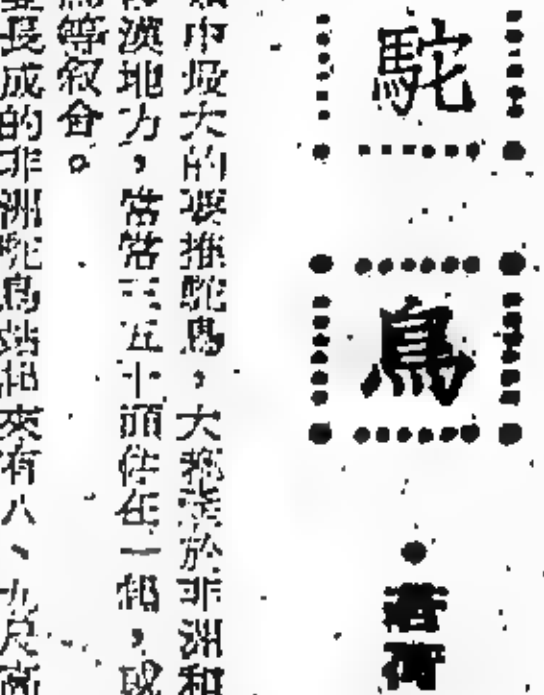 駝鳥
中最大的要推駝鳥，大都產於非洲和
漠地方，常常三五十頭住在一起，或
等叙會。
長成的非洲駝鳥站起來有八、九尺高